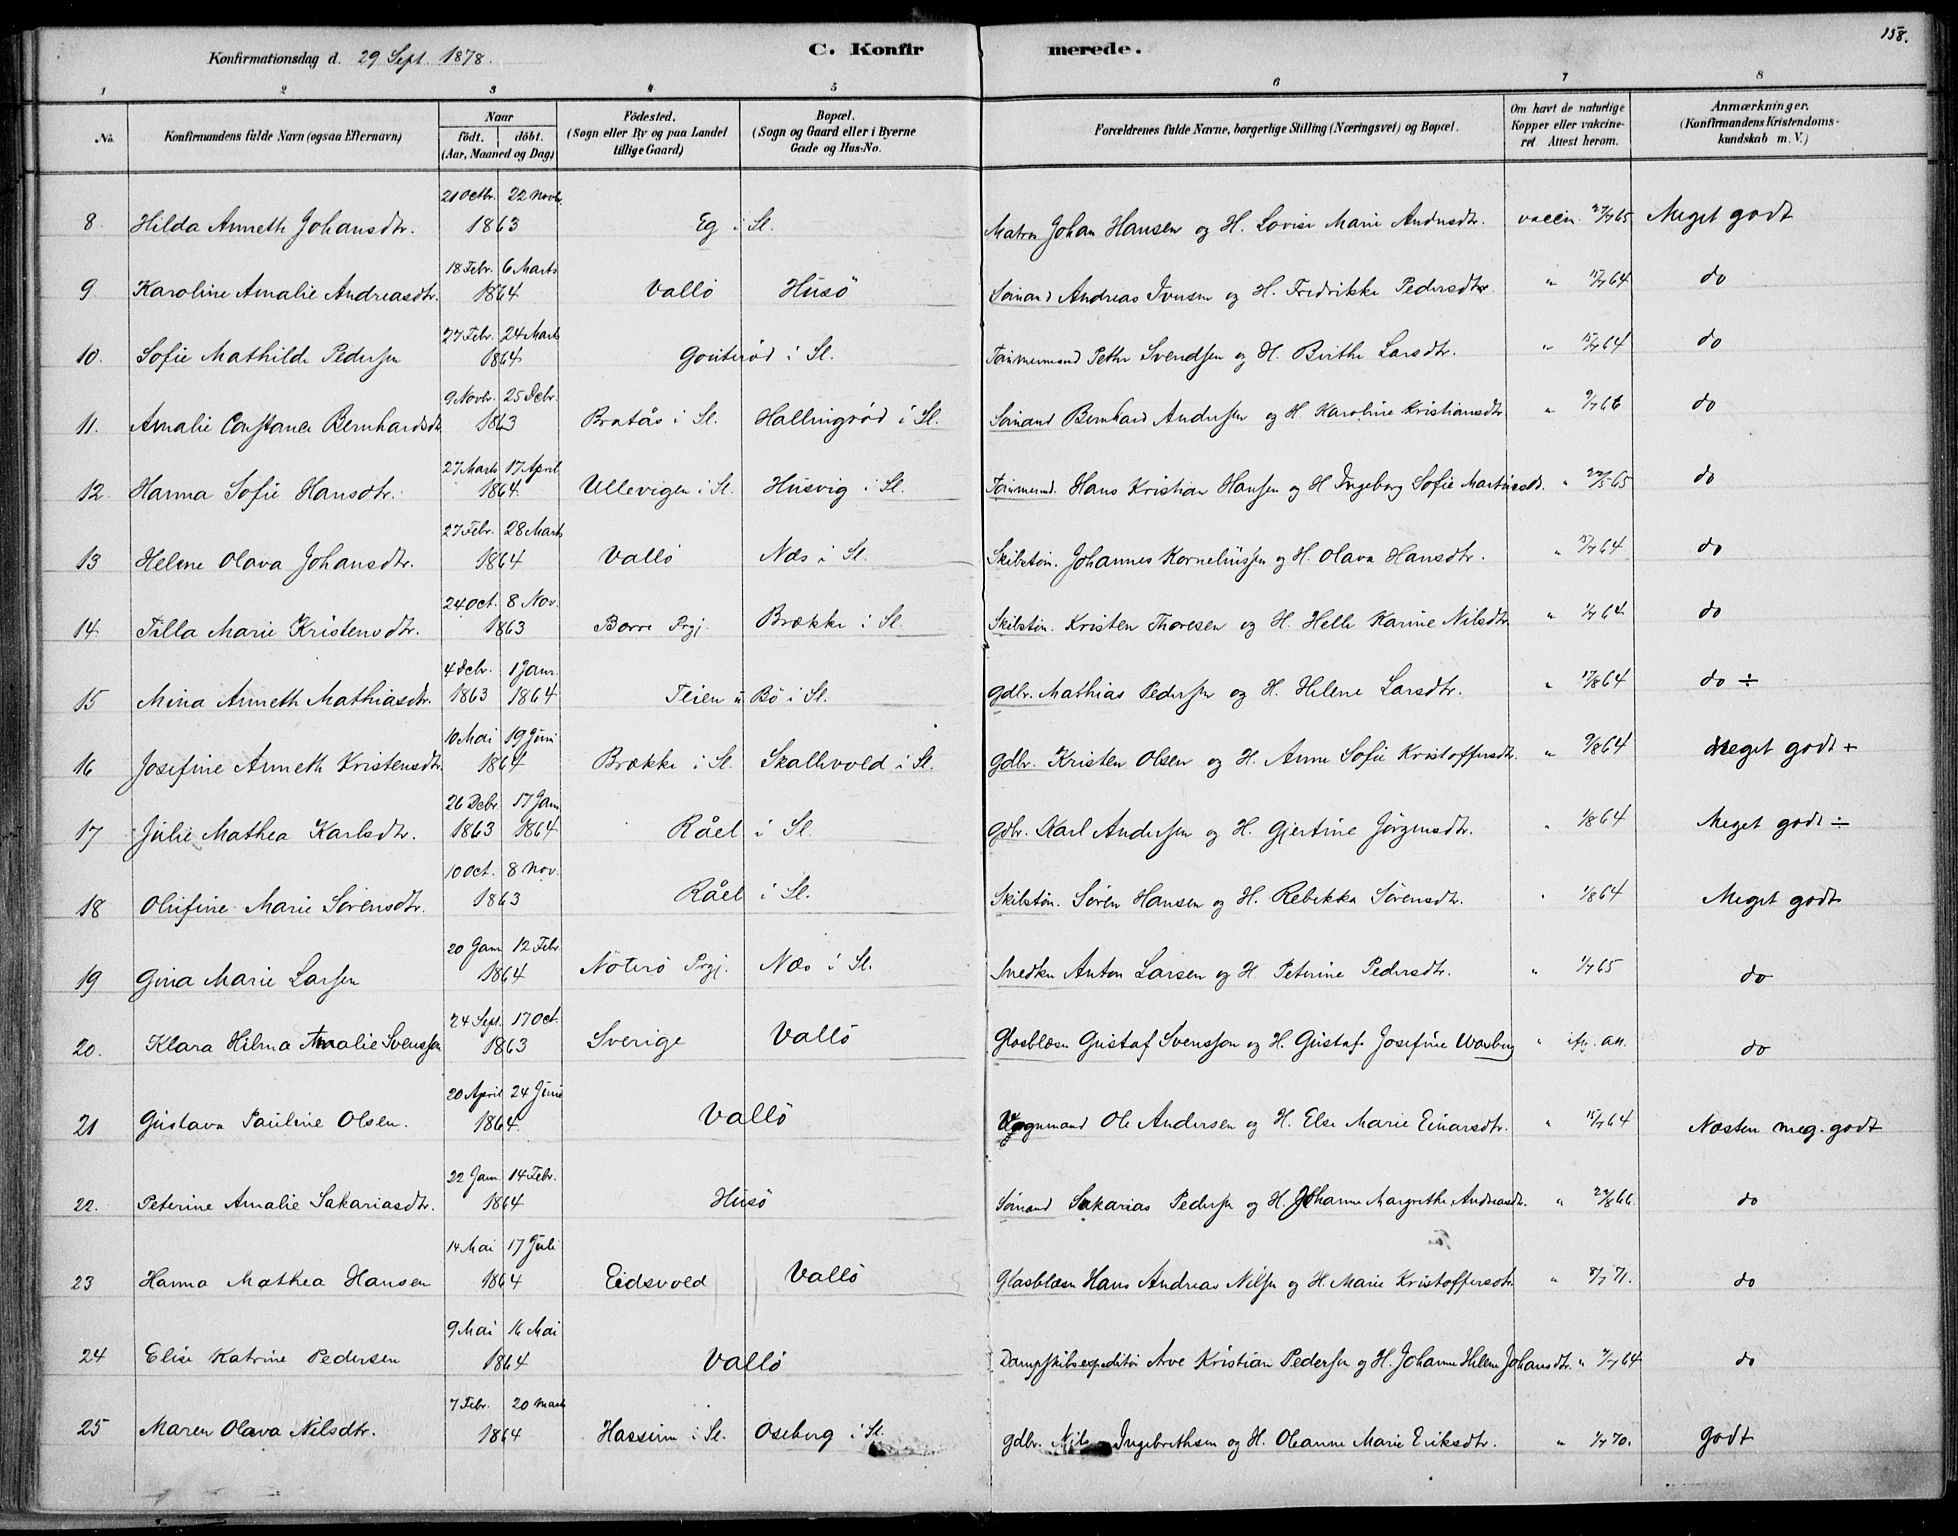 158.
C. Konfirmerede.
Konfirmationsdag d. 29 Sept. 1878.
1 2 3 4 5 6 7 8
No. Konfirmandens fulde Navn (ogsaa Efternavn) Naar födt. döbt. (Aar, Maaned og Dag) Födested. (Sogn eller By og paa Landet tillige Gaard) Bopæl. (Sogn og Gaard eller i Byerne Gade og Hus-No. Forældrenes fulde Navne, borgerlige Stilling (Næringsvei) og Bopæl. Om havt de naturlige Kopper eller vakcineret. Attest herom. Anmærkninger. (Konfirmandens Kristendomskundskab m. V.)
8. Hilda Anneth Johansdtr. 21 Octbr. 22 Novbr. 1863 Eg i Sl. Matros Johan Hansen og H. Lovise Marie Andrsdtr. vaccin. 65 Meget godt
9 Karoline Amalie Andreasdtr. 18 Febr. 6 Marts 1864 Vallö Husö Sömand Andreas Iversen og H. Fredrikke Pedersdtr. " 64 do
10. Sofie Mathilde Pedersen 27 Febr. 24 Marts 1864 Gouterød i Sl. Tömmermand Petter Svendsen og H. Birthe Larsdtr. " 15/7 64 do
11. Amalie Constance Bernhardsdtr 9 Novbr. 25 Debr. 1863 Bratås i Sl. Hallingrød i Sl. Sömand Bernhard Andersen og H. Karoline Kristiansdtr " 9/7 66 do
12. Hanna Sofie Hansdtr. 27 Marts 17 April 1864 Ullevigen i Sl. Husvig i Sl. Tömmermd. Hans Kristian Hansen og H Ingeborg Sofie Martinsd. " 22/5 65 do
13 Helene Olava Johansdtr. 27 Febr. 28 Marts 1864 Vallö Næs i Sl. Skibstöm. Johannes Korneliussen og H. Olava Hansdtr. " 64 do
14. Tilla Marie Kristensdtr. 24 Oct. 8 Nov. 1863 Borre Prgj. Brække i Sl. Skibstöm. Kristen Thoresen og H. Helle Karine Nilsdtr. " 1/7 64. do
15 Mina Anneth Mathiasdtr. 4 Debr. 1863 1 Janr. 1864 Teien u Bö i Sl. gdbr. Mathias Pedersen og H. Helene Larsdtr. " 17/8 64 do ÷
16 Josefine Anneth Kristensdtr. 10 Mai 19 Juni 1864 Brække i Sl. Skallevold i Sl. gdbr. Kristen Olsen og H. Anne Sofie Kristoffersdtr. " 9/8 64 Meget godt +
17 Julie Mathea Karlsdtr. 26 Debr. 1863 17 Jan 1864 Råel i Sl. gdbr. Karl Andersen og H. Gjertine Jörgensdtr. " 1/8 64 Meget godt ÷
18 Olufine Marie Sörensdtr. 10 Oct. 8 Nov. 1863 Råel i Sl. Skibstöm. Sören Hansen og H. Rebekka Sörensdtr. " 1/8 64 Meget godt
19 Gina Marie Larsen 20 Jan 12 Febr 1864 Nöterö Prgj. Næs i Sl. Snedker Anton Larsen og H Peterine Pedersdtr. " 1/7 65 do
20. Klara Hilma Amalie Svensson 24 Sept. 17 Oct. 1863 Sverige Vallö Glasblæser Gustaf Svensson og H. Gustafi Josefine Warberg " ifg. att. do
21 Gustava Pauline Olsen. 20 April 24 Juni 1864 Vallö Vognmand Ole Andersen og H. Else Marie Einarsdtr. " 15/7 64 Næsten meg. godt
22. Peterine Amalie Sakariasdtr. 22 Jan. 14 Febr. 1864 Husö Sömand Sakarias Pedersen og H. Johanne Margrethe Andreasdtr. " 22/8 66. do
23 Hanna Mathea Hansen 14 Mai 17 Juli 1864 Eidsvold Vallö Glasblæser Hans Andreas Nilsen og H. Marie Kristoffersdtr " 8/7 71. do
24 Elise Katrine Pedersen 9 Mai 16 Mai 1864 Vallö Dampskibsexpeditör Arve Kristian Pedersen og H. Johanne Helene Johansdtr. " 7/7 64 do
25 Maren Olava Nilsdtr. 7 Febr. 20 Marts 1864 Hasseim i Sl. Oseberg i Sl. gdbr. Nils Ingebrethsen og H. Oleanne Marie Eriksdtr. " 1/7 70. Godt